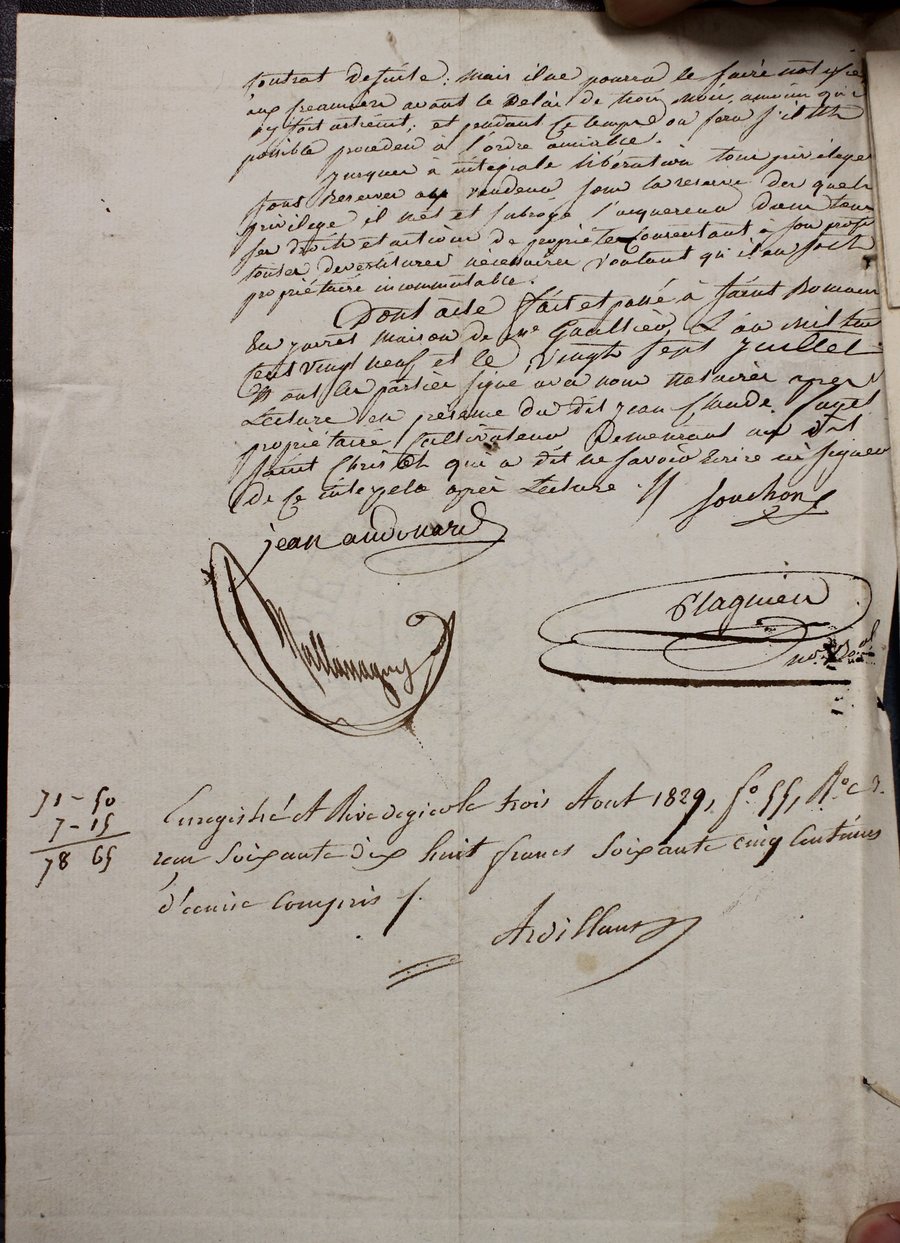 contrat desuite. mais il ne pourra le faire notifier
aux creanciers avant le delai de trois mois, amoins qu'il
n'y soit astreint, et pendant ce temps on fera s'il est
possible proceder à l'ordre amiable.
jusques à integrale libération tous privileges
sont reservés au vendeur sous la reserve des quels
privilege il met et subroge l'acquereur dans tous
ses droits et actions de propriété consentant à son profit
toutes devestitures necessaires voulant qu'il en soit
propriétaire incommutable.
Dont acte fait et passé à saint Romain
En jarret maison de me Gaultier, L'an mil huit
cent vingt neuf et le vingt sept juillet
Et ont les parties signé avec nous notaires apres
Lecture en présence du dit jean Claude
propriétaire cultivateur Demeurant au dit
saint Christôt qui a dit ne savoir Ecrire ni signer
de ce interpelé après Lecture ./.
jean audouard
Souchon
Plagnieu
Enregistré A Rivedegier le trois Aout 1829, fo. 55, Ro. c 3.
recu Soixante dix huit francs Soixante cinq Centimes
d'ecime compris /.
71-50
7-15
78 65
Ardillant